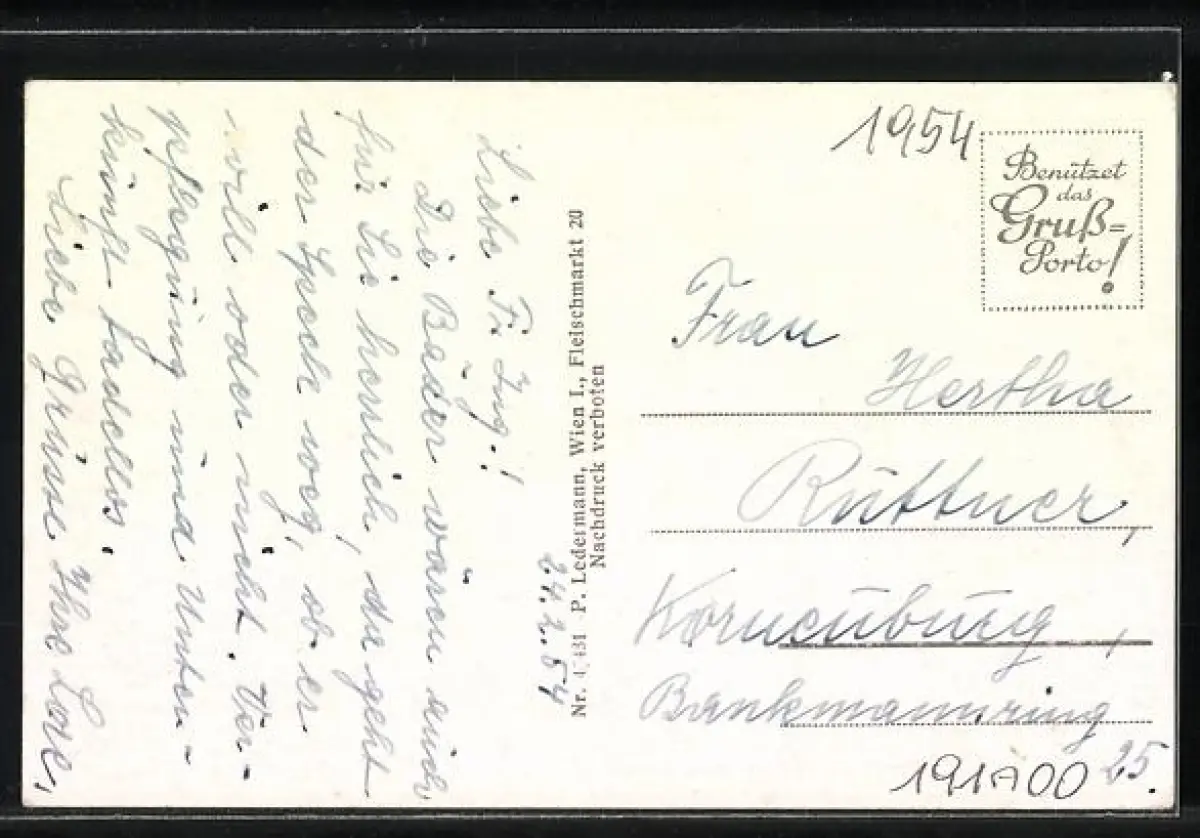 24.2.54
Liebe Fr. Ing.!
Die Bäder wären auch
für Sie herrlich, da geht
der Speck weg, ob er
will oder nicht. Ver-
pflegung und Unter-
kunft tadellos.
Liebe Grüsse Ihre Lore,
P. Ledermann, Wien I., Fleischmarkt 20
Nachdruck verboten
1954
Benützet
das
Gruß=
Porto!
Frau
Hertha
Rüttner,
Korneuburg,
Bankmannring
25.
191A00